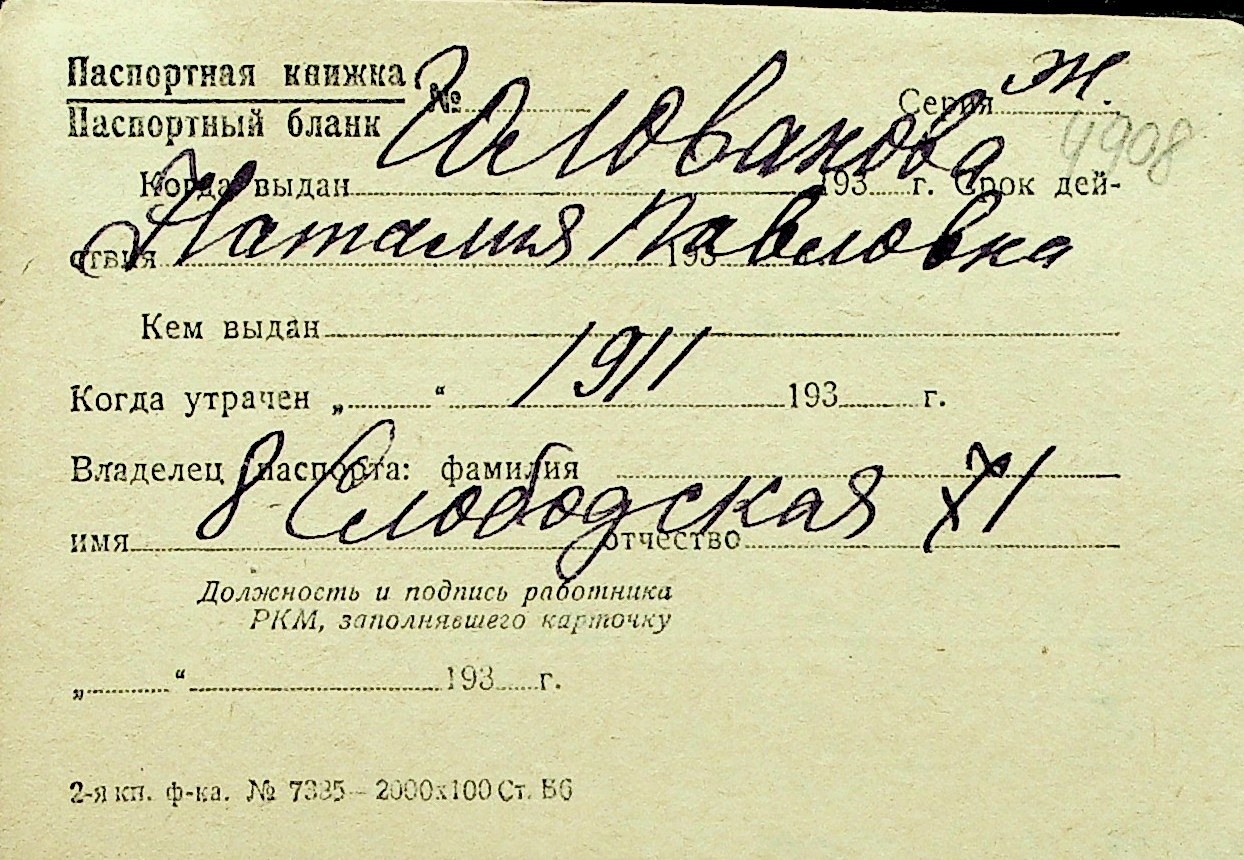 Паспортная книжка
Паспортный бланк № Серия Ж
Голованова 4908
Когда выдан 193 г. Срок дей-
ствия 193
Наталия Павловна
Кем выдан
1911
Когда утрачен „ “ 193 г.
Владелец паспорта: фамилия
8 Слободская XI
имя отчество
Должность и подпись работника
РКМ, заполнявшего карточку
„ “ 193 г.
2-я кп. ф-ка. № 7385 – 2000х100 Ст. Б6